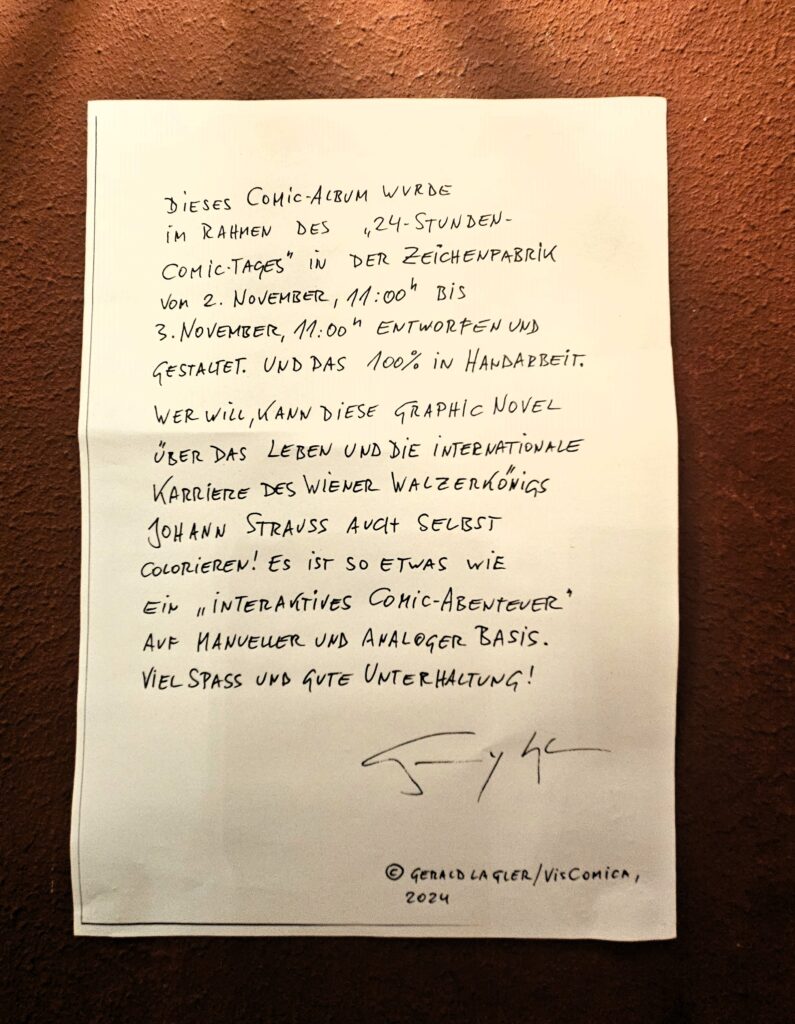 DIESES COMIC-ALBUM WURDE
IM RAHMEN DES „24-STUNDEN-
COMIC-TAGES" IN DER ZEICHENFABRIK
VOM 2. NOVEMBER, 11:00ʰ BIS
3. NOVEMBER, 11:00ʰ ENTWORFEN UND
GESTALTET. UND DAS 100% IN HANDARBEIT.
WER WILL, KANN DIESE GRAPHIC NOVEL
ÜBER DAS LEBEN UND DIE INTERNATIONALE
KARRIERE DES WIENER WALZERKÖNIGS
JOHANN STRAUSS AUCH SELBST
COLORIEREN! ES IST SO ETWAS WIE
EIN „INTERAKTIVES COMIC-ABENTEUER"
AUF MANUELLER UND ANALOGER BASIS.
VIEL SPASS UND GUTE UNTERHALTUNG!
© GERALD LAGLER/VISCOMICA,
2024